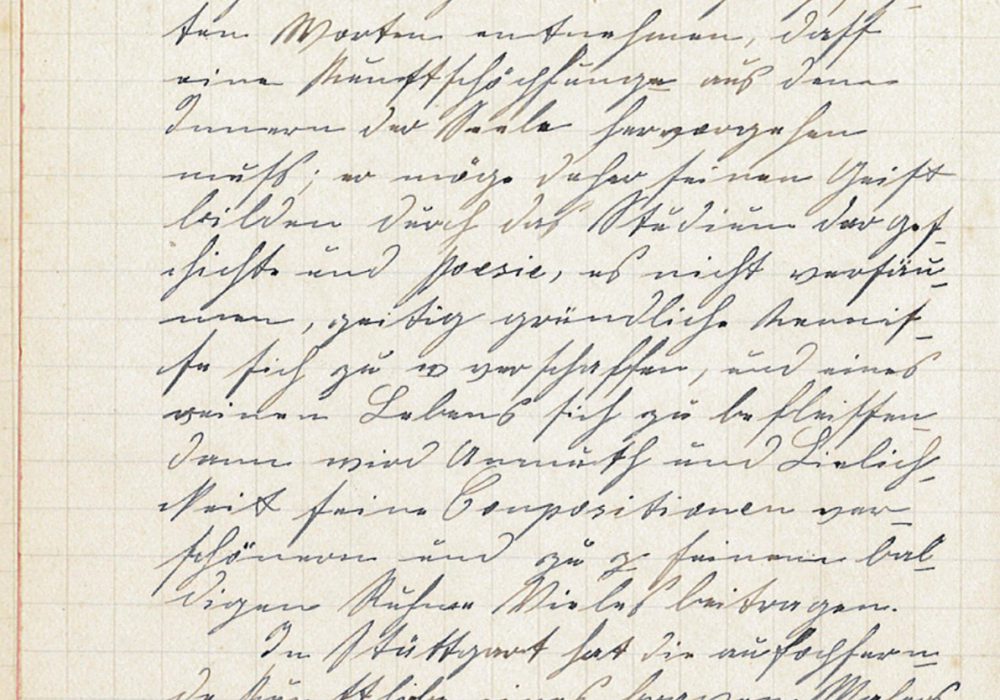 ten Worten entnehmen, daß
eine Kunstschöpfung aus dem
Innern der Seele hervorgehen
muß; er möge daher seinen Geist
bilden durch das Studium der Ges-
chichte und Poesie, es nicht versäu-
men, zeitig gründliche Kennis-
se sich zu verschaffen, und eines
reinen Lebens sich zu befleissen
dann wird Anmuth und Lielich-
keit seine Conpositionen ver-
schönern und zu seinem bal-
digen Ruhme Vieles beitragen.
In Stuttgart hat die aufopfern-
de eines braven